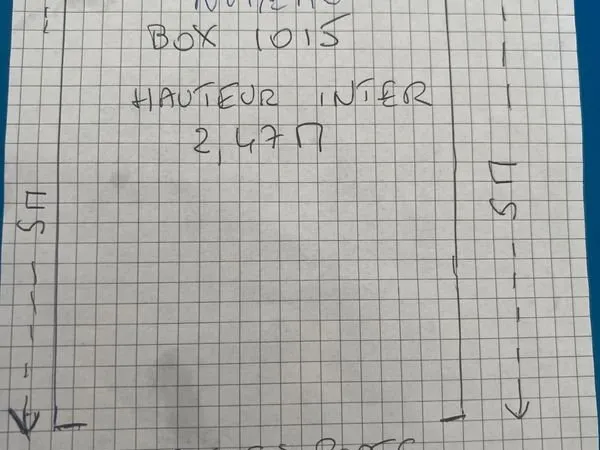 NUMERO
BOX 1015
HAUTEUR INTER
2,47 M
5 M
5 M